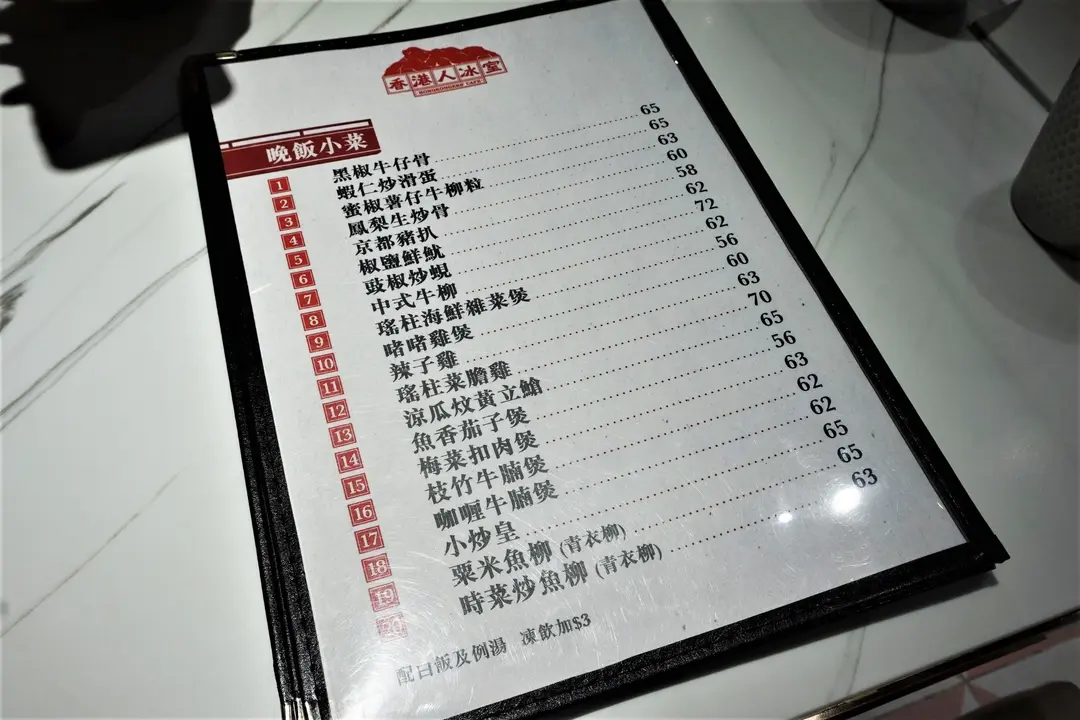 香港人冰室
HONGKONGER CAFE
晚飯小菜
1 黑椒牛仔骨 65
2 蝦仁炒滑蛋 65
3 蜜椒薯仔牛柳粒 63
4 鳳梨生炒骨 60
5 京都豬扒 58
6 椒鹽鮮魷 62
7 豉椒炒蜆 72
8 中式牛柳 62
9 瑤柱海鮮雜菜煲 56
10 啫啫雞煲 60
11 辣子雞 63
12 瑤柱菜膽雞 70
13 涼瓜炆黃立鱠 65
14 魚香茄子煲 56
15 梅菜扣肉煲 63
16 枝竹牛腩煲 62
17 咖喱牛腩煲 62
18 小炒皇 65
19 粟米魚柳 (青衣柳) 65
20 時菜炒魚柳 (青衣柳) 63
配白飯及例湯 凍飲加$3